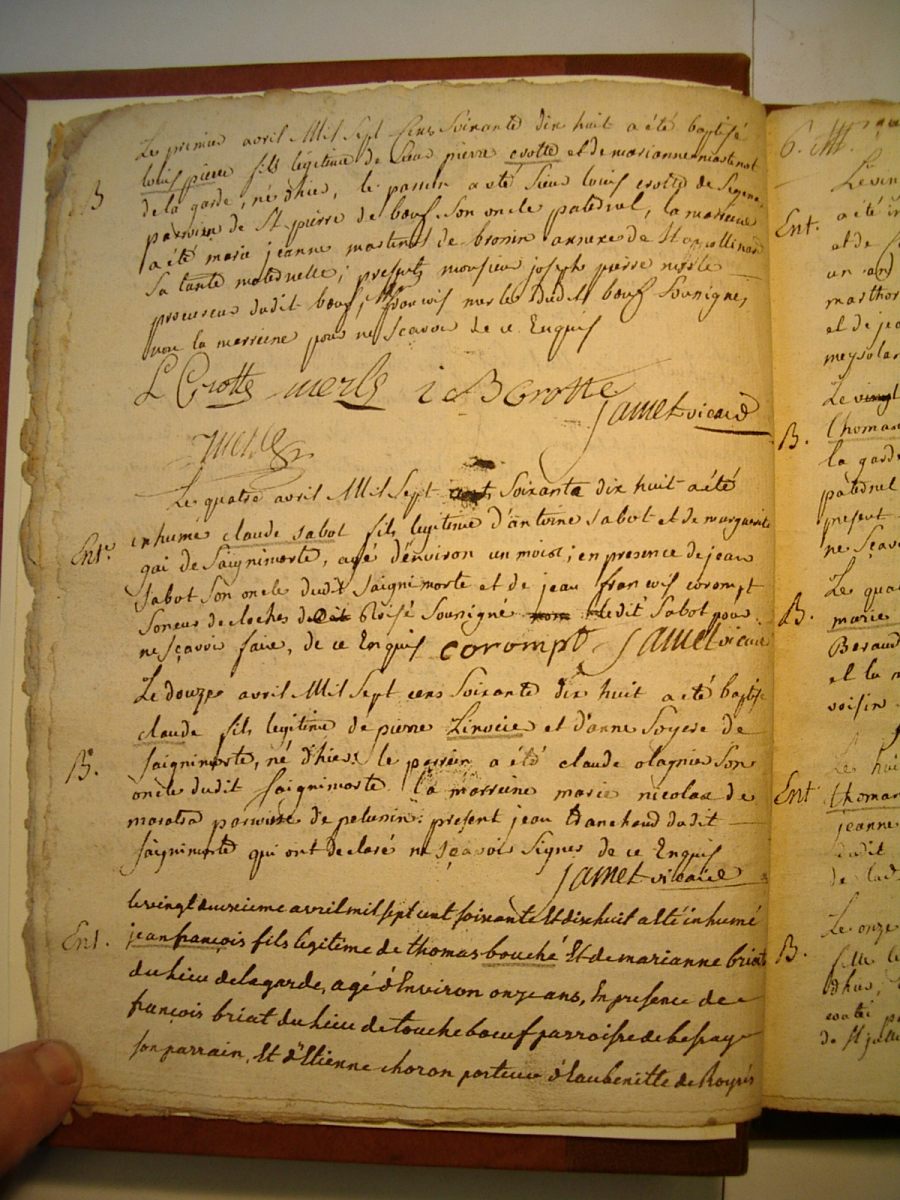 B
Le premier avril Mil Sept Cens Soixante dix huit a été baptisé
louis pierre fils legitime de Sieur pierre crotte et de marianne mastenot
de la garde, né d'hier, le parrin a été Sieur louis crotte de
parroisse de St pierre de bœuf Son oncle paternel, la marreine
a été marie jeanne mastenot de annexe de St appollinard
Sa tante maternelle; presents monsieur joseph pierre merle
procureur dudit bœuf, françois merle dudit bœuf Sousignés,
non la marreine pour ne Sçavoir de ce Enquis
L Crotte merle B Crotte
jamet vicaire
merle
Ent.
Le quatre avril Mil Sept Soixante dix huit a été
inhume claude sabot fils legitime d'antoine Sabot et de marguerite
gai de Saignimorte, agé d'environ un mois; en presence de jean
Sabot Son oncle dudit Saignimorte et de jean françois corompt
Soneur de cloches dudit Roisé Sousigné ledit Sabot pour
ne Sçavoir faire, de ce Enquis corompt jamet vicaire
B.
Le douze avril Mil Sept cens Soixante dix huit a été baptisé
claude fils legitime de pierre Linocie et d'anne Soyere de
Saignimorte, né d'hier: le parrin a été claude olagnier Son
oncle dudit Saignimorte la marreine marie nicolas de
maratra parroisse de pelussin: present jean dudit
Saignimorte qui ont declaré ne Sçavoir Signer de ce Enquis
jamet vicaire
Ent.
le vingt deuxieme avril mil sept cent soixante Et dix huit a été inhumé
jean françois fils legitime de thomas bouché Et de marianne briat
du lieu de la garde, agé d'Environ onze ans, En presence de
françois briat du lieu de touche bœuf parroisse de bessay
son parrain, Et d'Etienne choron porteur d'Eau benitte de Roysés
6.
Ent.
a été
et de
un an
et de
B.
Le vingt
thomas
la garde
paternel
present
ne Sçavoir
B.
Le qua
marie
Beraud
et la
voisin
Ent
Le hui
thomas
jeanne
dudit
de lad
B.
Le onze
fille le
d'hier,
de St